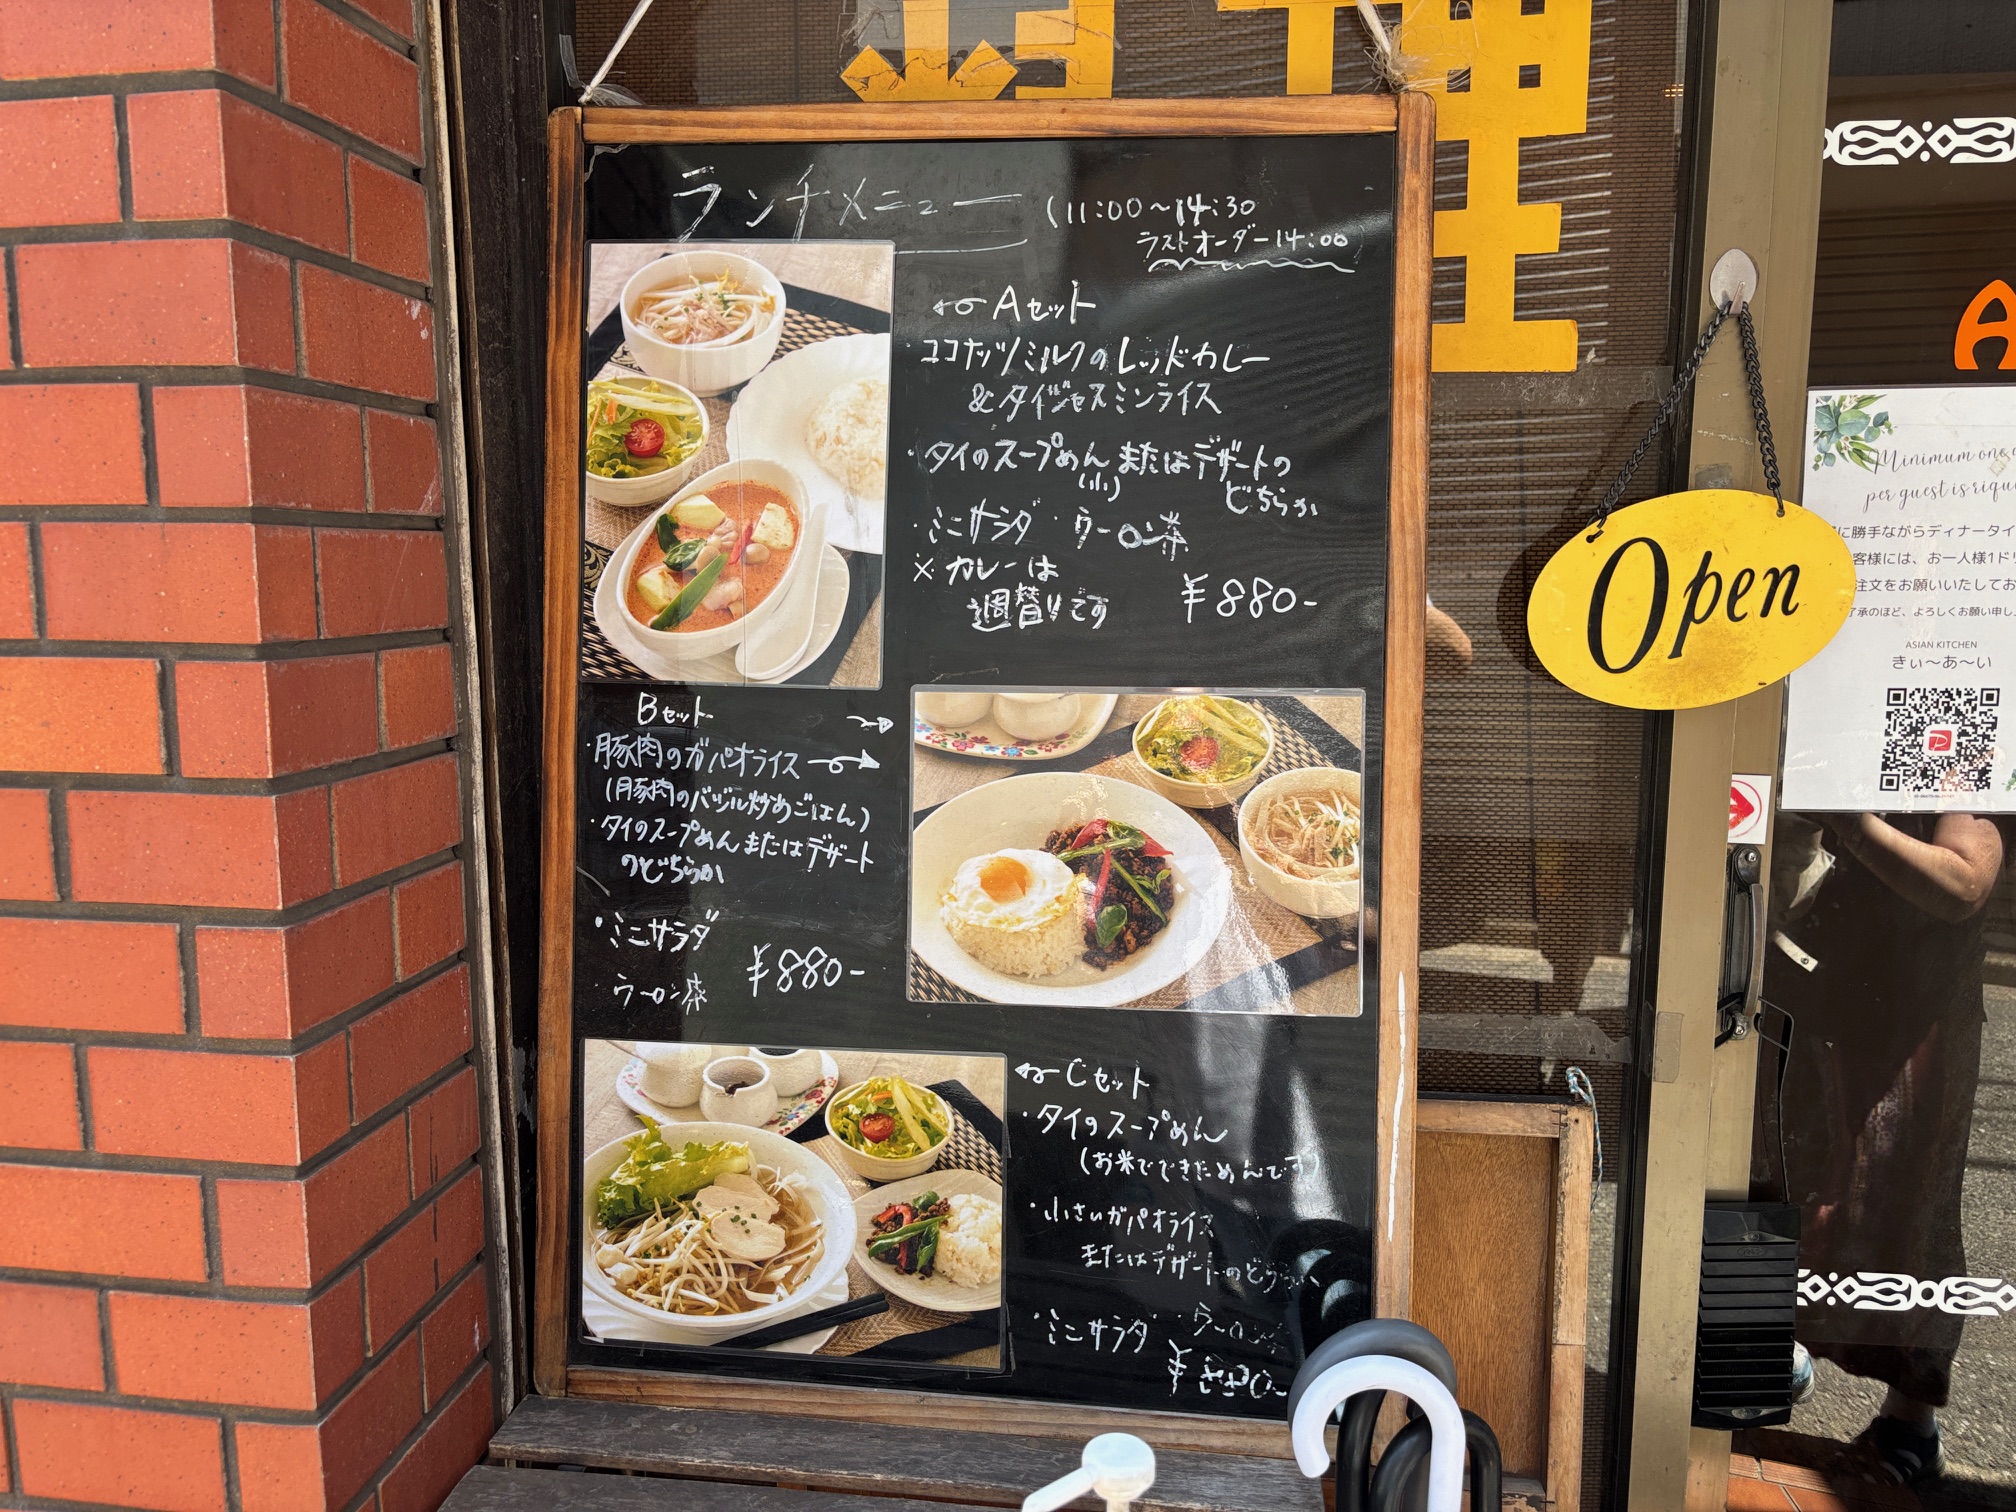 理
ランチメニュー
(11:00〜14:30
ラストオーダー14:00)
Aセット
ココナッツミルクのレッドカレー
&タイジャスミンライス
・タイのスープめんまたはデザートの
(小)
どちらか
・ミニサラダ・ウーロン茶
※カレーは
週替りです
¥880-
Bセット
・豚肉のガパオライス
(豚肉のバジル炒めごはん)
・タイのスープめんまたはデザート
のどちらか
・ミニサラダ
・ウーロン茶
¥880-
Cセット
・タイのスープめん
(お米でできためんです)
・小さいガパオライス
またはデザートのどちらか
・ミニサラダ
・ウーロン茶
Open
A
Minimum one
per guest is
に勝手ながらディナータイ
客様には、お一人様1ド
注文をお願いいたしてお
了承のほど、よろしくお願い申し
ASIAN KITCHEN
きぃ〜あ〜い